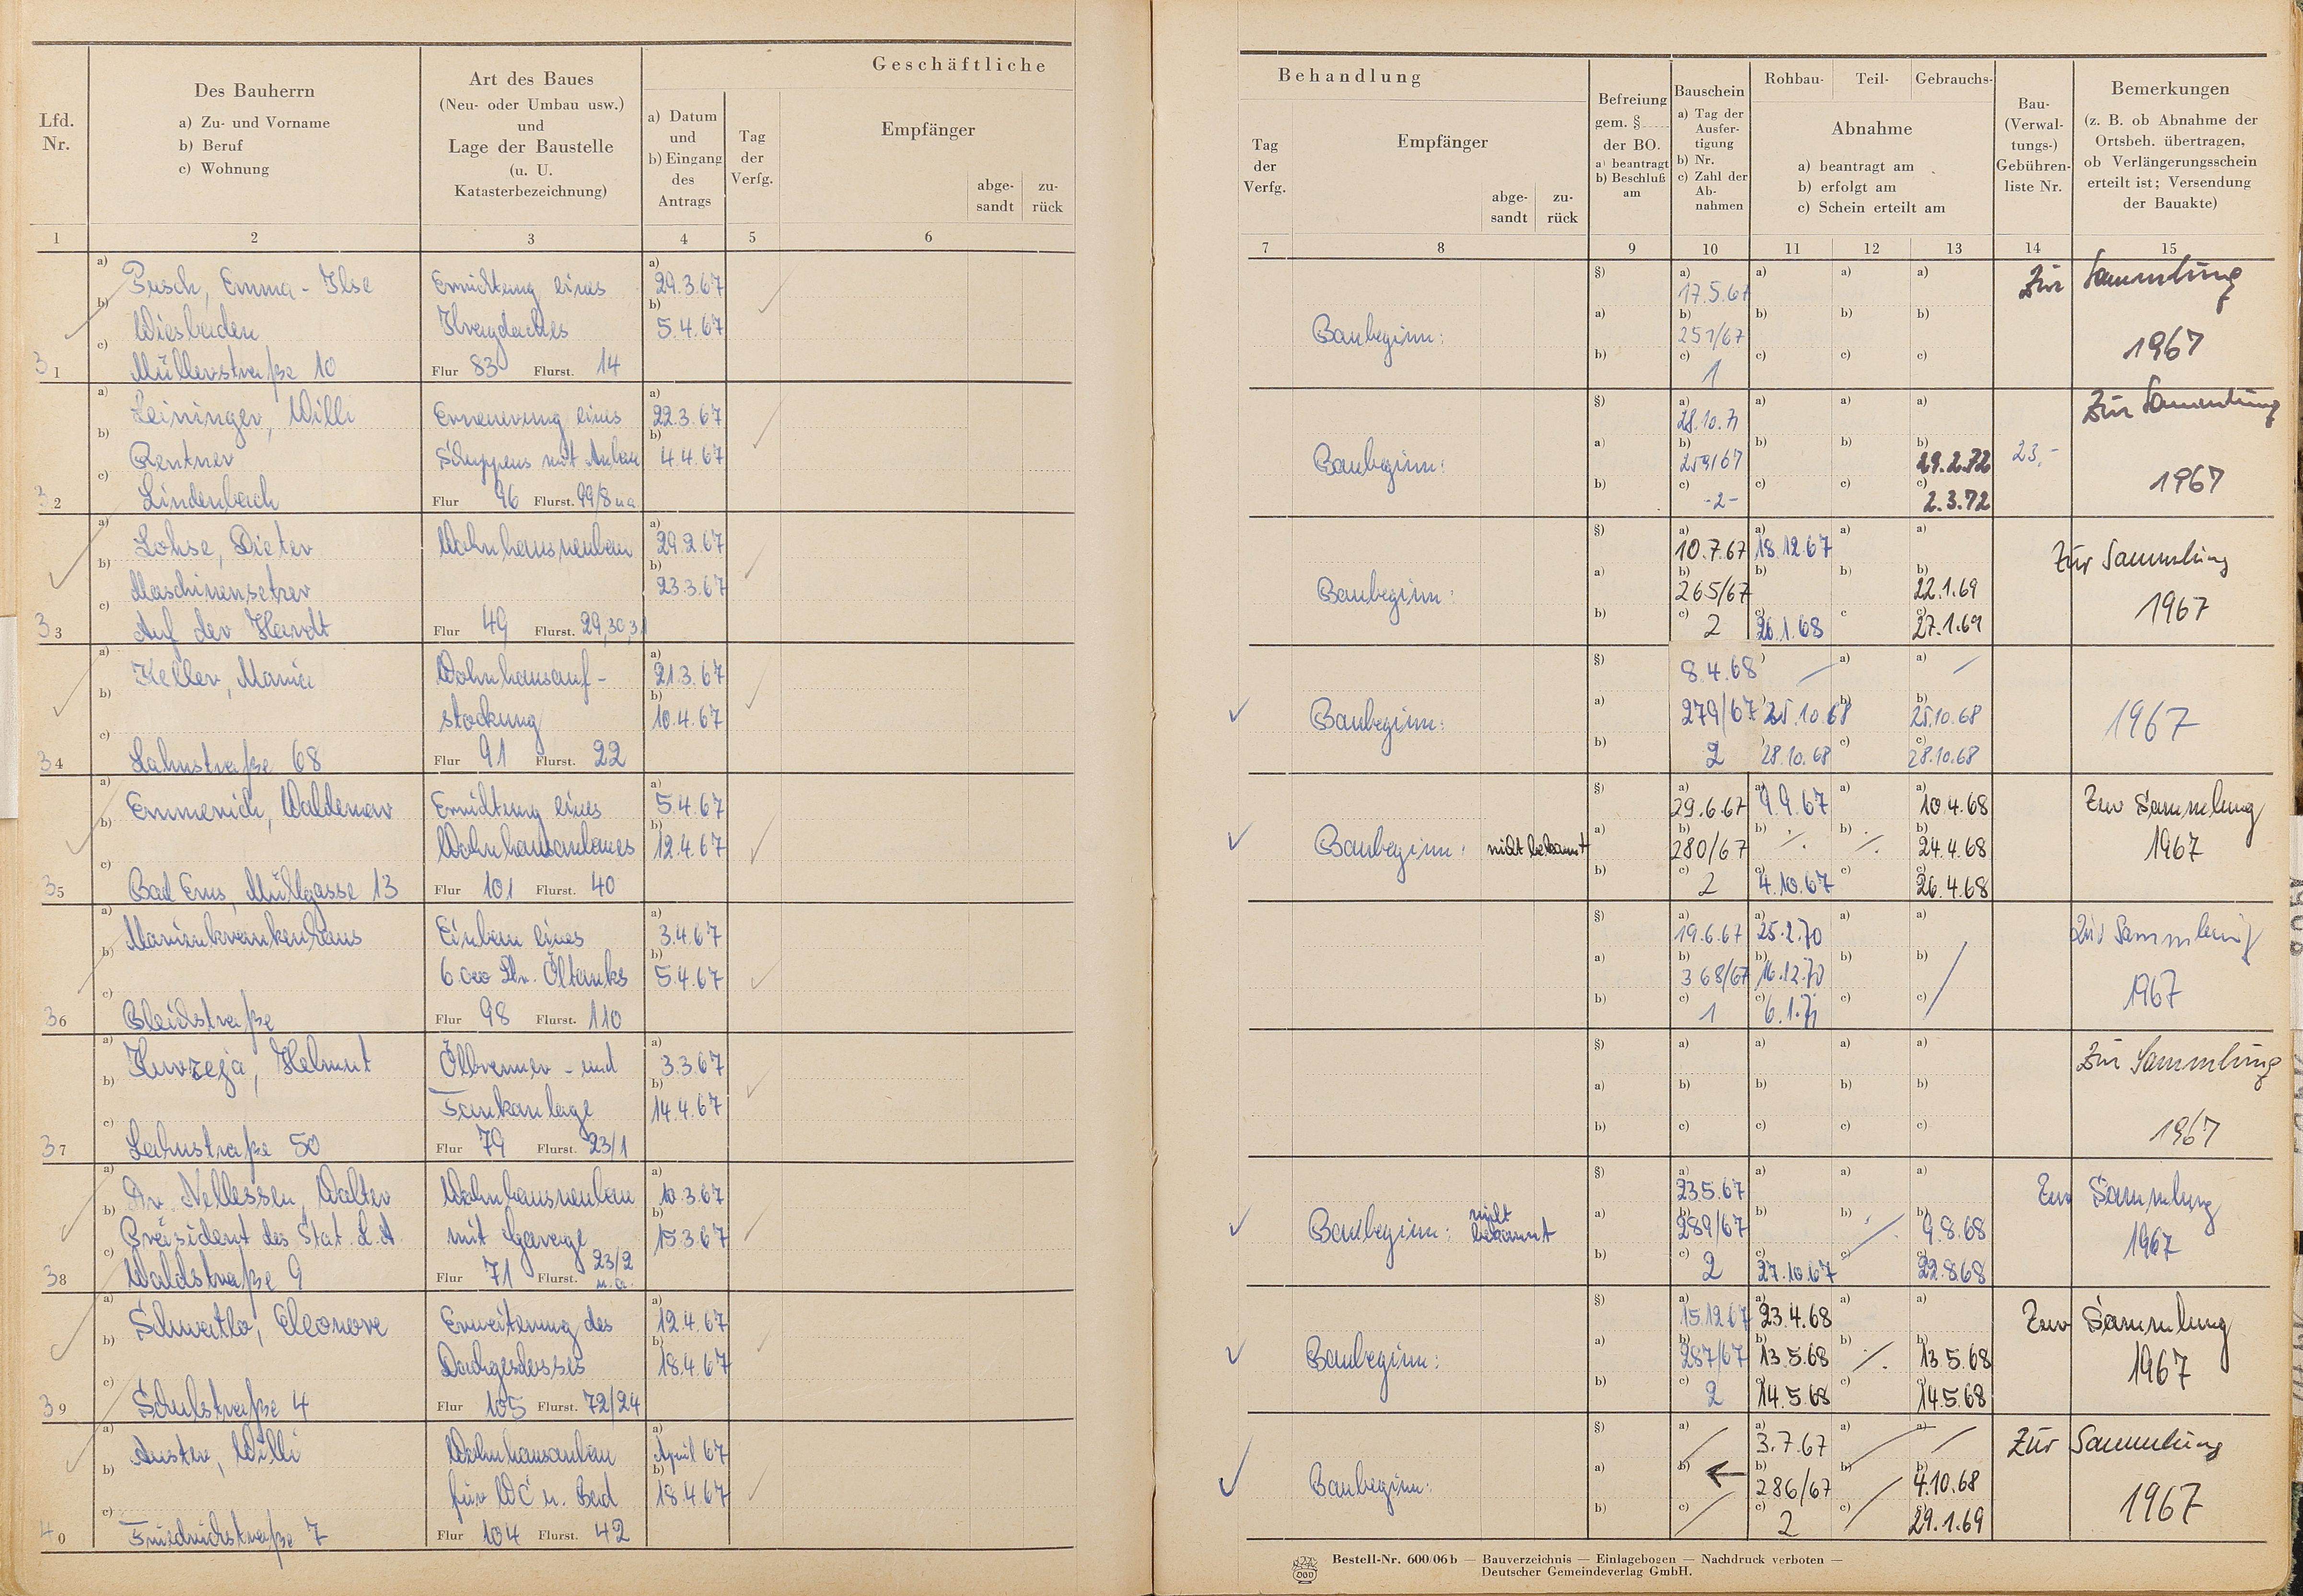 Geschäftliche
Lfd. Nr.
Des Bauherrn
a) Zu- und Vorname
b) Beruf
c) Wohnung
Art des Baues
(Neu- oder Umbau usw.)
und
Lage der Baustelle
(u. U.
Katasterbezeichnung)
a) Datum
und
b) Eingang
des
Antrags
Tag
der
Verfg.
Empfänger
abge-
sandt
zu-
rück
1 2 3 4 5 6
a) Pusch, Emma - Ilse
b) Wiesbaden
c) Müllerstraße 10
31
Errichtung eines
Flur 83 Flurst. 14
a) 29.3.67
b) 5.4.67
a) Leininger, Willi
b) Rentner
c) Lindenbach
32
Erneuerung eines
Schuppens mit Anbau
Flur 96 Flurst. 99/8 u.a.
a) 22.3.67
b) 4.4.67
a) Lohse, Dieter
b) Maschinensetzer
c) Auf der Hardt
33
Wohnhausneubau
Flur 49 Flurst. 29,30,31
a) 29.2.67
b) 23.3.67
a) Keller, Maria
b)
c) Lahnstraße 68
34
Wohnhausauf-
stockung
Flur 91 Flurst. 22
a) 21.3.67
b) 10.4.67
a) Emmerich, Waldemar
b)
c) Bad Ems, Mühlgasse 13
35
Errichtung eines
Wohnhausanbaues
Flur 101 Flurst. 40
a) 5.4.67
b) 12.4.67
a) Marienkrankenhaus
b)
c) Bleichstraße
36
Einbau eines
6.000 Ltr. Öltanks
Flur 98 Flurst. 110
a) 3.4.67
b) 5.4.67
a) Kurzeja, Helmut
b)
c) Lahnstraße 50
37
Ölbrenner - und
Tankanlage
Flur 79 Flurst. 23/1
a) 3.3.67
b) 14.4.67
a) Dr. Nellessen, Walter
b) Präsident des Stat. L.A
c) Waldstraße 9
38
Wohnhausneubau
mit Garage
Flur 71 Flurst. 23/2 u.a.
a) 10.3.67
b) 15.3.67
a) Schwatlo, Eleonore
b)
c) Schulstraße 4
39
Erweiterung des
Dachgeschosses
Flur 105 Flurst. 72/24
a) 12.4.67
b) 18.4.67
a) Auster, Willi
b)
c) Friedrichstraße 7
40
Wohnhausanbau
für WC u. Bad
Flur 104 Flurst. 42
a) April 67
b) 18.4.67
Behandlung
Tag
der
Verfg.
Empfänger
abge-
sandt
zu-
rück
Befreiung
gem. §
der BO.
a) beantragt
b) Beschluß
am
Bauschein
a) Tag der
Ausfer-
tigung
b) Nr.
c) Zahl der
Ab-
nahmen
Rohbau- Teil- Gebrauchs-
Abnahme
a) beantragt am
b) erfolgt am
c) Schein erteilt am
Bau-
(Verwal-
tungs-)
Gebühren-
liste Nr.
Bemerkungen
(z. B. ob Abnahme der
Ortsbeh. übertragen,
ob Verlängerungsschein
erteilt ist; Versendung
der Bauakte)
7 8 9 10 11 12 13 14 15
§) a) 17.5.67 a) a) a) Zur Sammlung
Baubeginn: a) b) 251/67 b) b) b)
1967
b) c) 1 c) c) c)
§) a) 28.10.71 a) a) a) Zur Sammlung
Baubeginn: a) b) 259/67 b) b) b) 29.2.72 23,-
1967
b) c) -2- c) c) c) 2.3.72
§) a) 10.7.67 a) 18.12.67 a) a)
Zur Sammlung
Baubeginn: a) b) 265/67 b) b) b) 22.1.69
1967
b) c) 2 c) 26.1.68 c c) 27.1.69
§) 8.4.68 a) a)
Baubeginn: a) 279/67 25.10.68 b) b) 25.10.68
1967
b) 2 28.10.68 c) c) 28.10.68
§) a) 29.6.67 a) 9.9.67 a) a) 10.4.68 Zur Sammlung
Baubeginn: nicht bekannt a) b) 280/67 b) ./. b) ./. b) 24.4.68
1967
b) c) 2 c) 4.10.67 c) c) 26.4.68
§) a) 19.6.67 a) 25.2.70 a) a) Zur Sammlung
a) b) 368/67 b) 16.12.70 b) b)
1967
b) c) 1 c) 6.1.71 c) c)
§) a) a) a) a) Zur Sammlung
a) b) b) b) b)
b) c) c) c) c) 1967
§) a) 23.5.67 a) a) a) Zur Sammlung
Baubeginn: nicht bekannt a) b) 289/67 b) b) ./. b) 9.8.68
1967
b) c) 2 c) 27.10.67 c) c) 22.8.68
§) a) 15.12.67 a) 23.4.68 a) a) Zur Sammlung
Baubeginn: a) b) 287/67 b) 13.5.68 b) ./. b) 13.5.68
1967
b) c) 2 c) 14.5.68 c) c) 14.5.68
§) a) a) 3.7.67 a) a) Zur Sammlung
Baubeginn: a) b) ← b) 286/67 b) b) 4.10.68
1967
b) c) c) 2 c) c) 29.1.69
Bestell-Nr. 600/06 b — Bauverzeichnis — Einlagebogen — Nachdruck verboten —
Deutscher Gemeindeverlag GmbH.